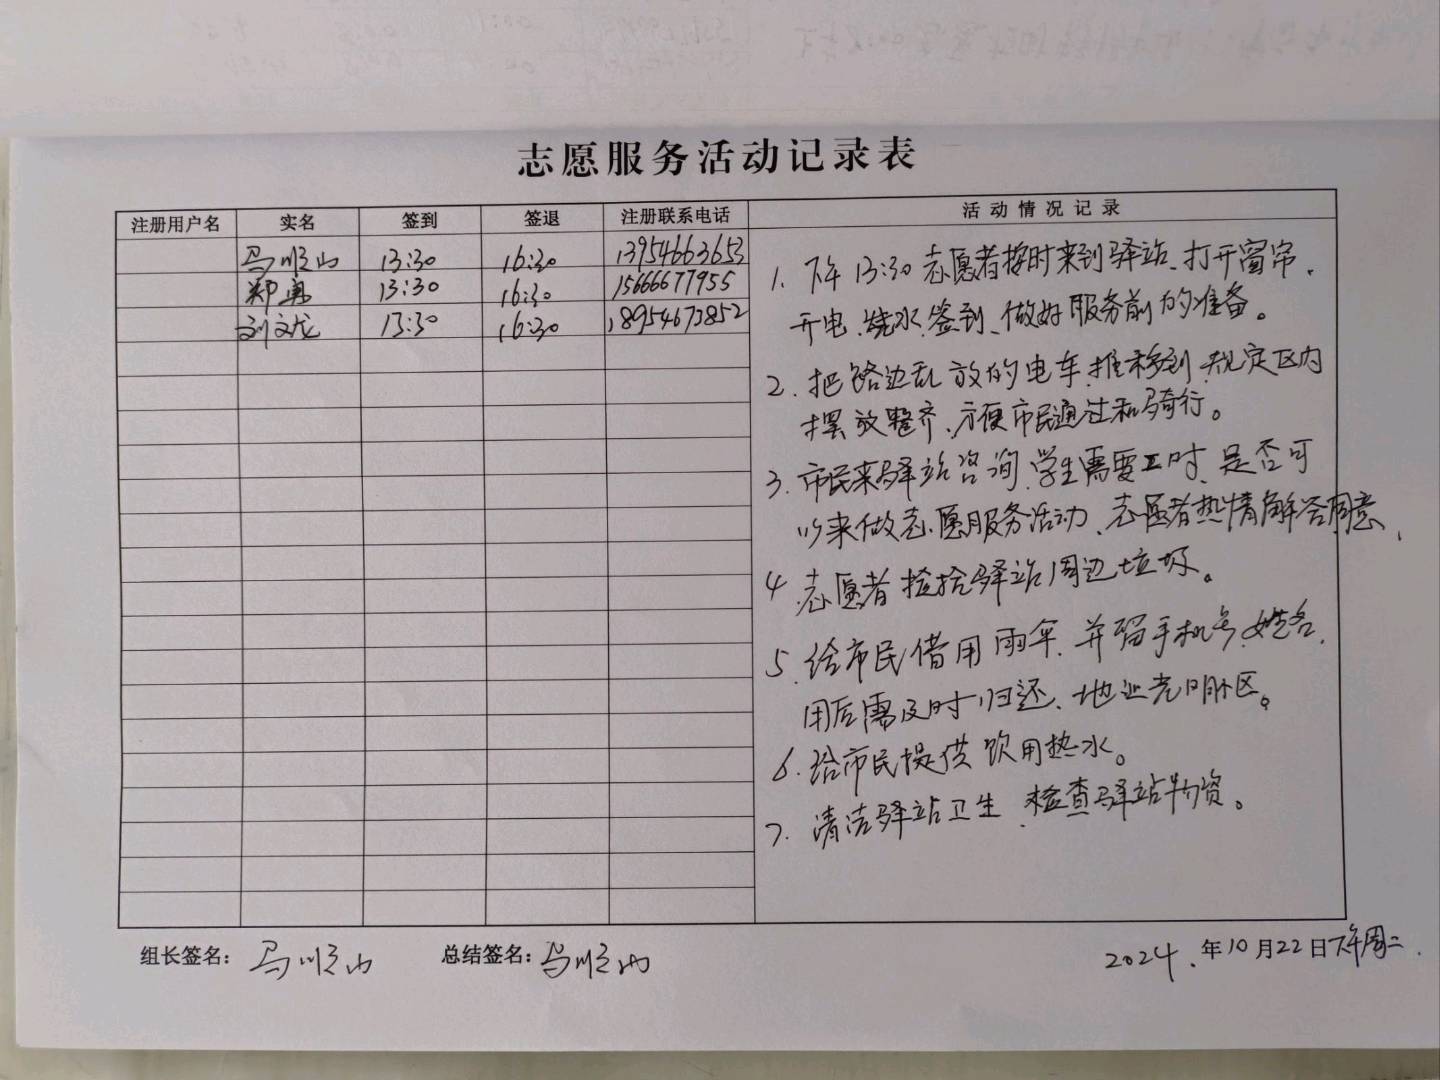 志愿服务活动记录表
注册用户名 实名 签到 签退 注册联系电话 活动情况记录
马顺山 13:30 16:30 13954663653
郑勇 13:30 16:30 15666677955
刘文龙 13:30 16:30 18954673852
1. 下午13:30志愿者按时来到驿站、打开窗帘、
开电、烧水、签到、做好服务前的准备。
2. 把路边乱放的电车、推移到规定区内
摆放整齐、方便市民通过和骑行。
3. 市民来驿站咨询、学生需要工时、是否可
以来做志愿服务活动、志愿者热情解答
4. 志愿者捡拾驿站周边垃圾。
5. 给市民借用雨伞、并留手机号、姓名、
用后需及时归还、
6. 给市民提供饮用热水。
7. 清洁驿站卫生、检查驿站物资。
组长签名：马顺山 总结签名：马顺山 2024.年10月22日下午周二.